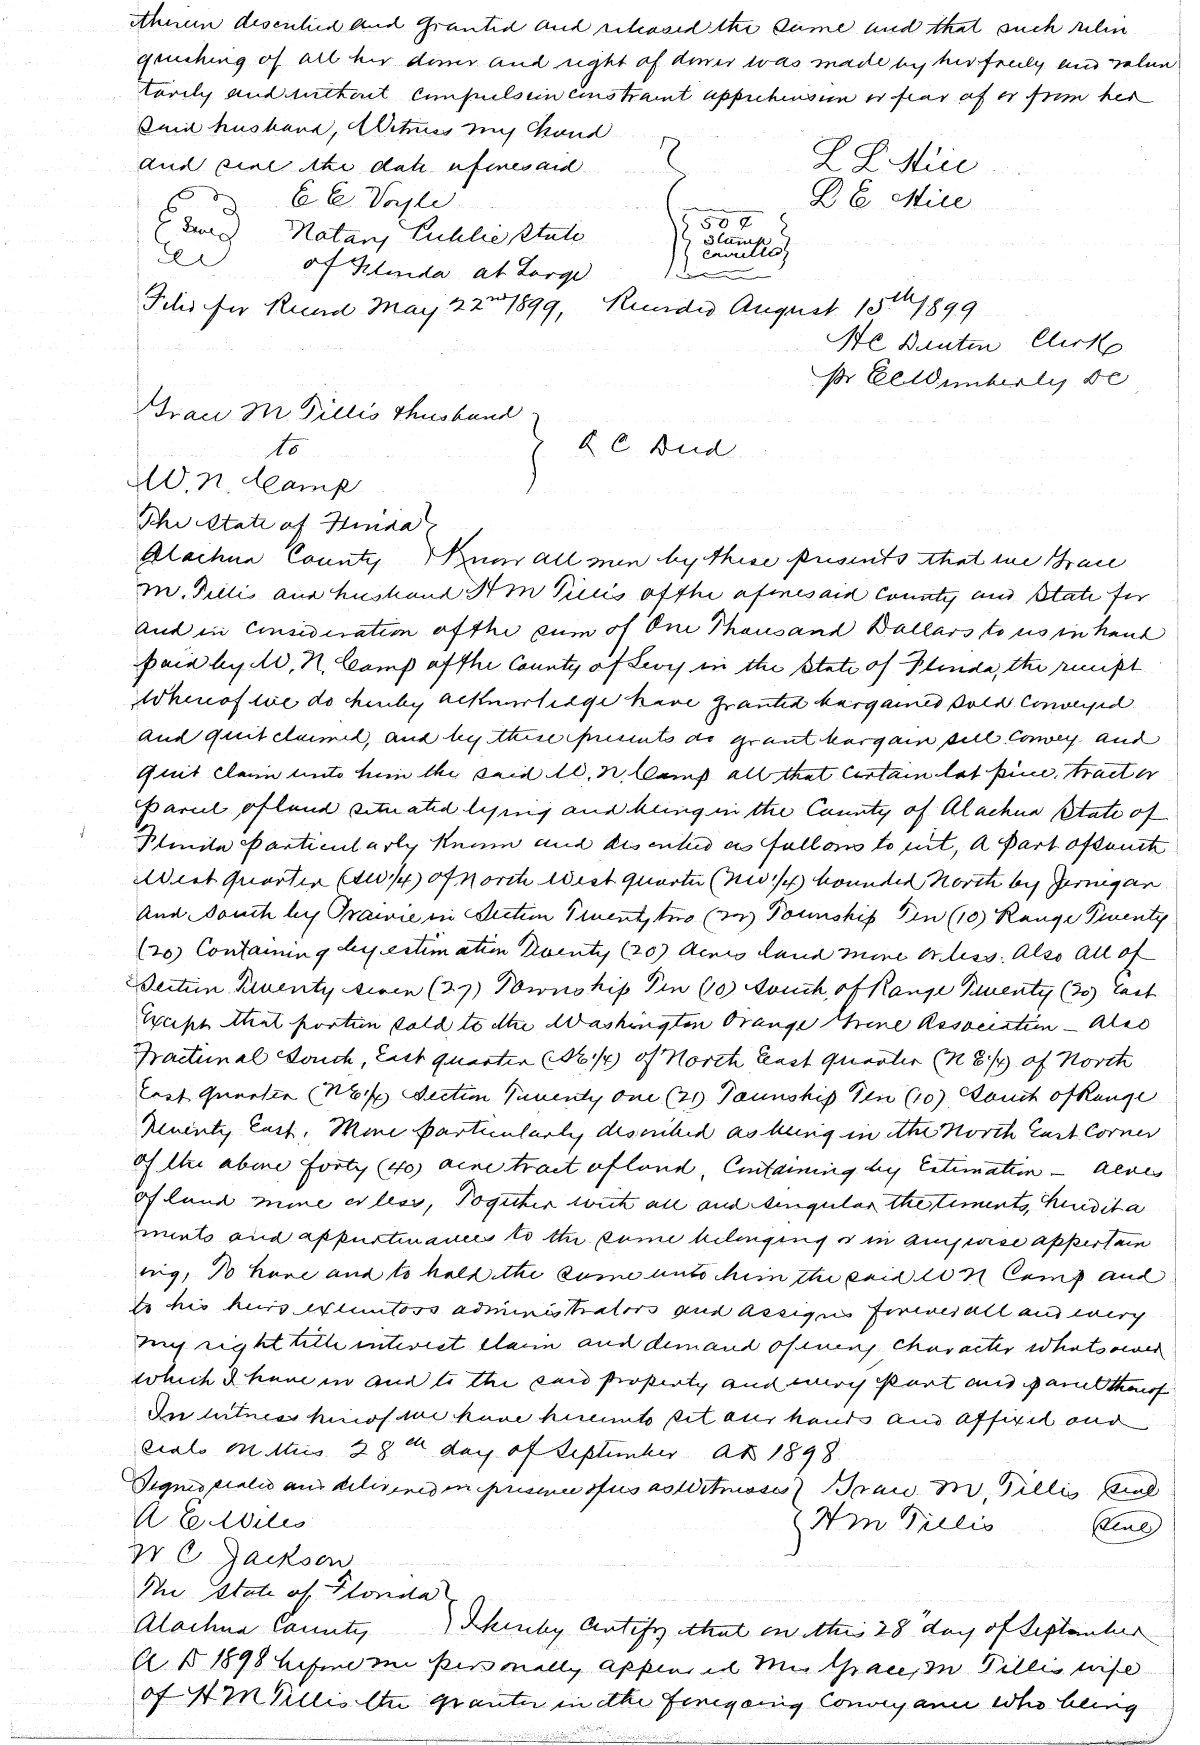 therein described and granted and released the same and that such relin
quishing of all her dower and right of dower was made by her freely and volun
tarily and without compulsion constraint apprehension or fear of or from her
said husband, Witness my hand
and seal the date aforesaid
L L Hill
E E Voyle
D E Hill
Notary Public State
50¢
Stamp
Cancelled
of Florida at Large
Filed for Record May 22nd 1899, Recorded August 15th 1899
H C Denton Clerk
pr E C Wimberly DC
Grace M Tillis & husband
to
Q C Deed
W. N. Camp
The State of Florida
Alachua County Know all men by these presents that we Grace
M. Tillis and husband H M Tillis of the aforesaid County and State for
and in consideration of the sum of One Thousand Dollars to us in hand
paid by W. N. Camp of the County of Levy in the State of Florida, the receipt
whereof we do hereby acknowledge have granted bargained sold conveyed
and quit claimed, and by these presents do grant bargain sell convey and
quit claim unto him the said W. N. Camp all that certain lot piece, tract or
parcel of land situated lying and being in the County of Alachua State of
Florida particularly known and described as follows to wit, A part of South
West quarter (SW 1/4) of North West quarter (NW 1/4) bounded North by Jernigan
and South by Prairie in Section Twenty two (22) Township Ten (10) Range Twenty
(20) Containing by estimation Twenty (20) Acres land more or less. Also all of
Section Twenty seven (27) Township Ten (10) South of Range Twenty (20) East
Except that portion sold to the Washington Orange Grove Association - Also
Fractional South, East quarter (SE 1/4) of North East quarter (N E 1/4) of North
East quarter (NE 1/4) Section Twenty one (21) Township Ten (10) South of Range
Twenty East. More particularly described as being in the North East Corner
of the above forty (40) acre tract of land, Containing by Estimation - Acres
of land more or less, Together with all and singular the tements, heredita
ments and appurtinances to the same belonging or in anywise appertain
ing, To have and to hold the same unto him the said W N Camp and
to his heirs executors administrators and assigns forever all and every
my right title interest claim and demand of every character whatsoever
which I have in and to the said property and every part and parcel thereof
In witness hereof we have hereunto set our hands and affixed our
seals on this 28th day of September AD 1898
Signed sealed and delivered in presence of us as Witnesses Grace M. Tillis Seal
A E Wiles H M Tillis Seal
W C Jackson
The State of Florida
Alachua County I hereby Certify that on this 28" day of September
A D 1898 before me personally appeared Mrs Grace, M Tillis wife
of H M Tillis the grantor in the foregoing Conveyance who being